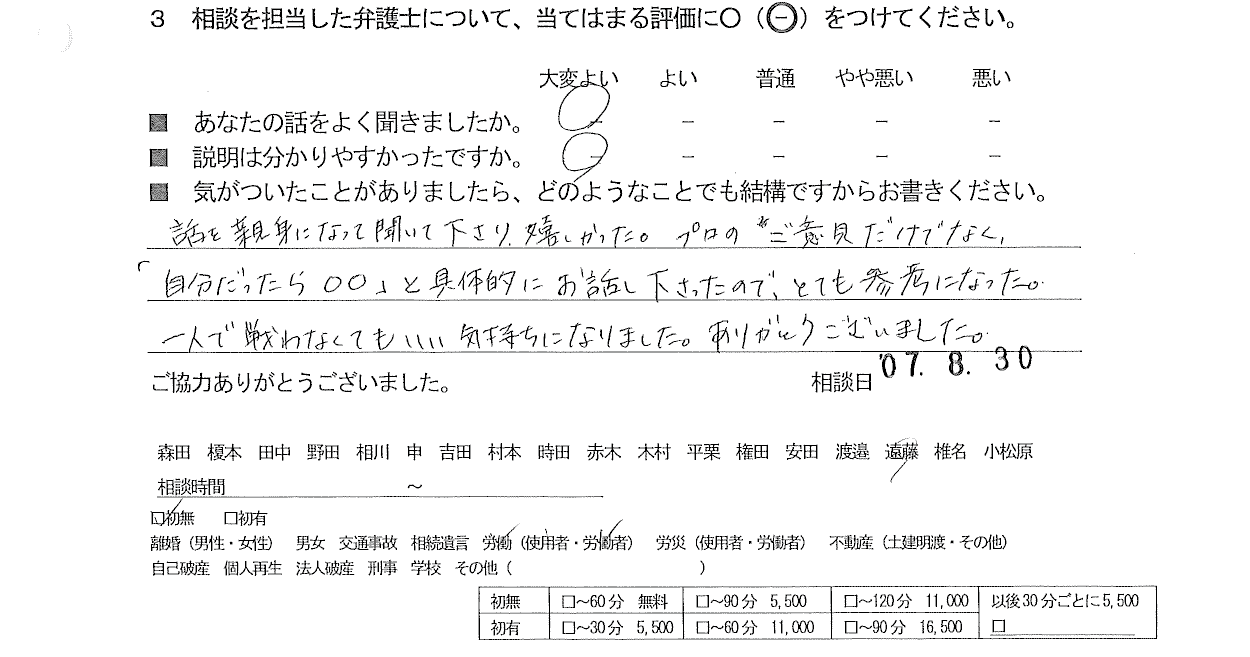 3 相談を担当した弁護士について、当てはまる評価に〇（㊀）をつけてください。
大変よい よい 普通 やや悪い 悪い
■ あなたの話をよく聞きましたか。 － － － － －
■ 説明は分かりやすかったですか。 － － － － －
■ 気がついたことがありましたら、どのようなことでも結構ですからお書きください。
話を親身になって聞いて下さり、嬉しかった。プロの ご意見だけでなく、
「自分だったら〇〇」と具体的にお話し下さったので、とても参考になった。
一人で戦わなくてもいい気持ちになりました。ありがとうございました。
ご協力ありがとうございました。 相談日 '07. 8. 30
森田 榎本 田中 野田 相川 申 吉田 村本 時田 赤木 木村 平栗 権田 安田 渡邉 遠藤 椎名 小松原
相談時間 ～
□初無 □初有
離婚（男性・女性） 男女 交通事故 相続遺言 労働（使用者・労働者） 労災（使用者・労働者） 不動産（土建明渡・その他）
自己破産 個人再生 法人破産 刑事 学校 その他（ ）
初無 □～60分 無料 □～90分 5,500 □～120分 11,000 以後30分ごとに5,500
初有 □～30分 5,500 □～60分 11,000 □～90分 16,500 □